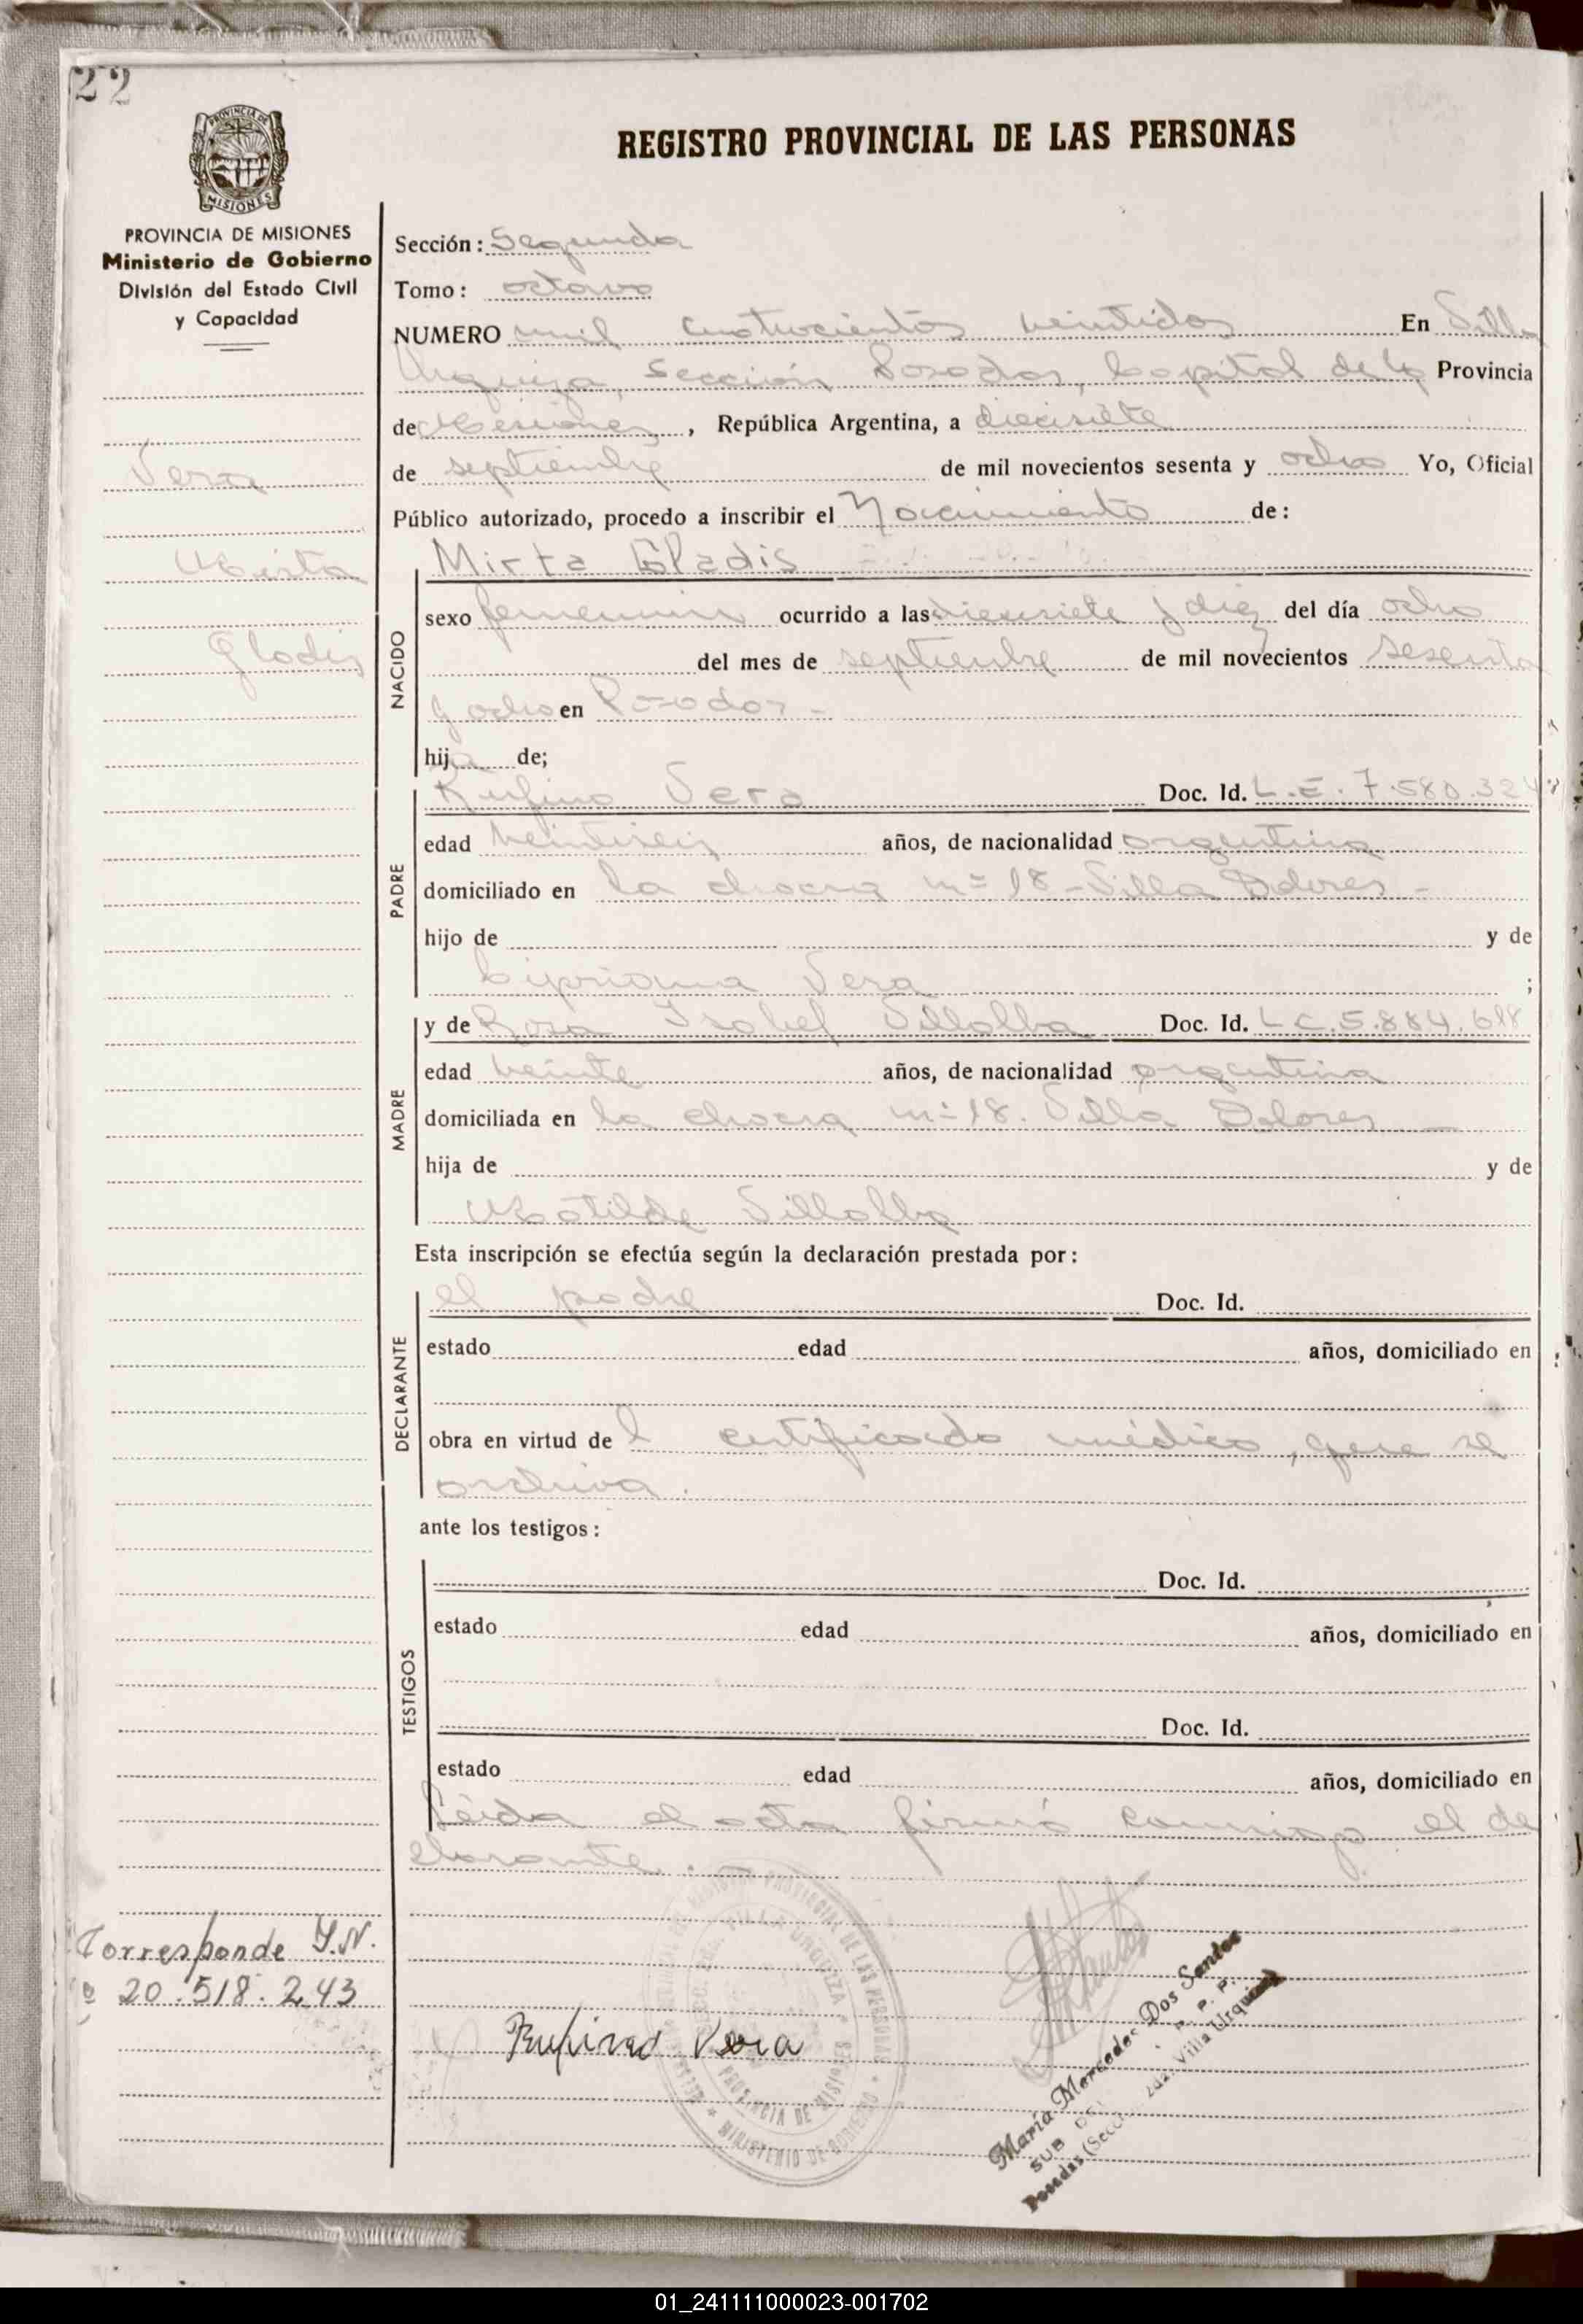 22
PROVINCIA DE
MISIONES
REGISTRO PROVINCIAL DE LAS PERSONAS
PROVINCIA DE MISIONES
Ministerio de Gobierno
División del Estado Civil
y Capacidad
Vera
Mirta
Gladis
Sección: Segunda
Tomo: octavo
NUMERO mil cuatrocientos veintidos En Villa
Urquiza, Sección Posadas, Capital de la Provincia
de Misiones, República Argentina, a diecisiete
de septiembre de mil novecientos sesenta y ocho Yo, Oficial
Público autorizado, procedo a inscribir el Nacimiento de:
NACIDO
Mirta Gladis
sexo femenino ocurrido a las diecisiete y diez del día ocho
del mes de septiembre de mil novecientos sesenta
y ocho en Posadas -
hija de;
PADRE
Rufino Vera Doc. Id. L.E. 7.580.324
edad veintiseis años, de nacionalidad argentina
domiciliado en la chacra nº 18 - Villa Dolores -
hijo de y de
Cipriana Vera ;
MADRE
y de Rosa Isabel Villalba Doc. Id. L C. 5.884.618
edad veinte años, de nacionalidad argentina
domiciliada en la chacra nº 18. Villa Dolores -
hija de y de
Matilde Villalba
Esta inscripción se efectúa según la declaración prestada por:
DECLARANTE
el padre Doc. Id.
estado edad años, domiciliado en
obra en virtud del certificado médico, que se
archiva.
ante los testigos:
TESTIGOS
Doc. Id.
estado edad años, domiciliado en
Doc. Id.
estado edad años, domiciliado en
Leida el acta firmó conmigo el de
clarante. -
Corresponde I.N.
º 20.518.243
Rufino Vera
VILLA URQUIZA
PROVINCIA DE MISIONES
MINISTERIO DE GOBIERNO
María Mercedes Dos Santos
SUB
R. P. P.
Posadas (Secc. 2da. Villa Urquiza)
01_241111000023-001702